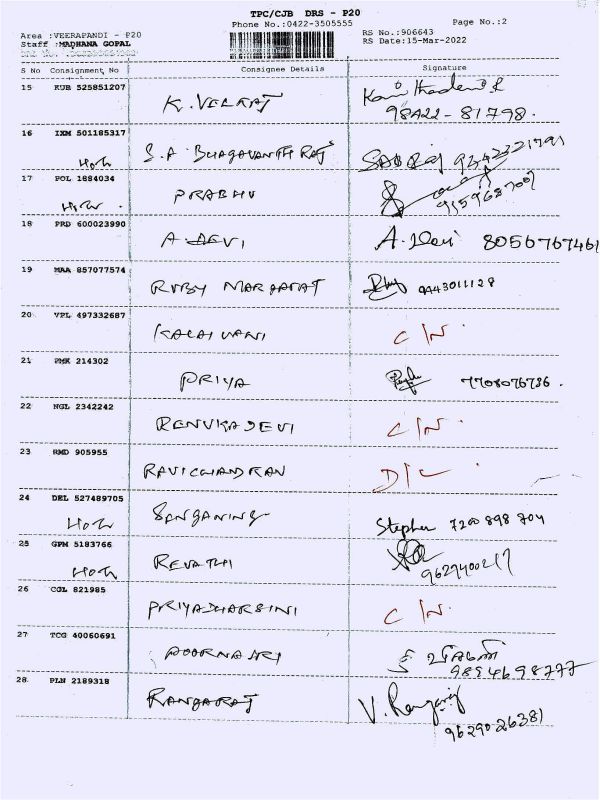 TPC/CJB DRS - P20
Phone No.:0422-3505555 Page No.:2
Area :VEERAPANDI - P20 RS No.:906643
Staff :MADHANA GOPAL RS Date:15-Mar-2022
S No Consignment No Consignee Details Signature
15 KUB 525851207 K. VELRAJ
98422-81798.
16 IXM 501185317 S.A. BHAGAVANTH RAJ
17 POL 1884034 PRABHU
18 PRD 600023990 A. DEVI A. Devi 8056767461
19 MAA 857077574 RUBY MARGARAT Ruby 9443011128
20 VPL 497332687 KALAIVANI C/N.
21 PMK 214302 PRIYA 7708076736.
22 NGL 2342242 RENUKADEVI C/N.
23 RMD 905955 RAVICHANDRAN D/L
24 DEL 527489705 SANGANING Stephen 7200 898 704
25 GPM 5183766 REVATHI
9629400217
26 CGL 821985 PRIYADHARSINI C/N.
27 TCG 40060691 POORNASRI
9894698777
28 PLN 2189318 RANGARAJ V. Rangaraj
9629026381